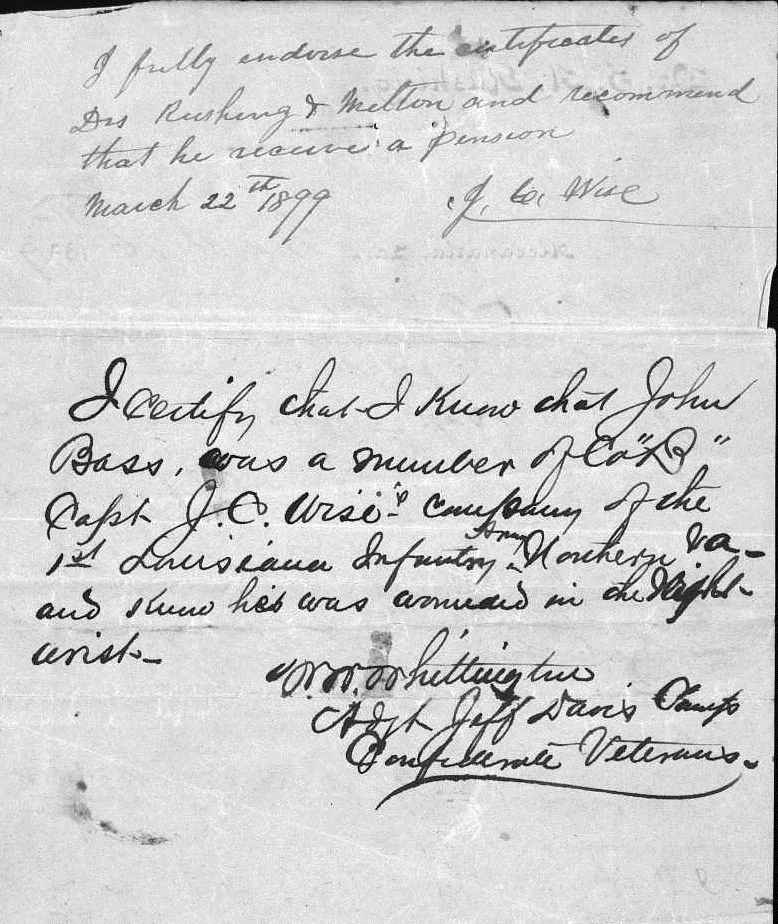 I fully endorse the certificates of
Drs Rushing & Melton and recommend
that he receive a pension
March 22th 1899 J. C. Wise
I Certify that I Know that John
Bass, was a member of Co "B"
Capt J. C. Wise's Company of the
1st Louisiana Infantry Army Northern Va-
and Know he was wounded in the Right-
wrist-
W. W. Whittington
Adjt Jeff Davis Camp
Confederate Veterans-